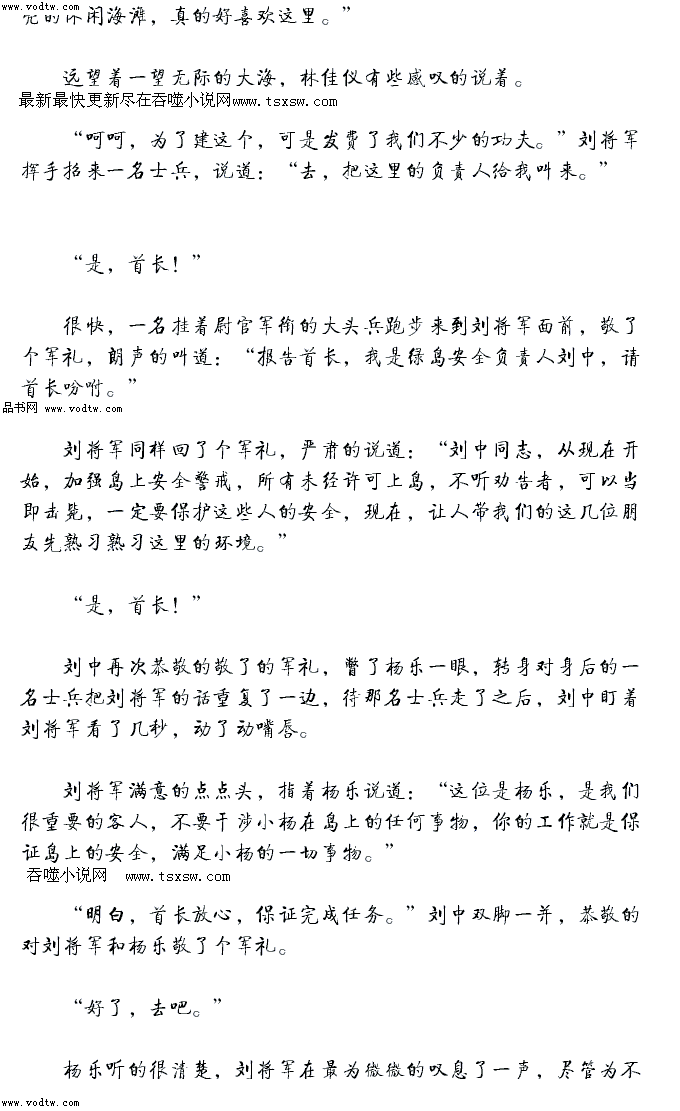 www.vodtw.com
的休闲海滩，真的好喜欢这里。”
远望着一望无际的大海，林佳仪有些感叹的说着。
最新最快更新尽在吞噬小说网www.tsxsw.com
“呵呵，为了建这个，可是发费了我们不少的功夫。”刘将军
挥手招来一名士兵，说道：“去，把这里的负责人给我叫来。”
“是，首长！”
很快，一名挂着尉官军衔的大头兵跑步来到刘将军面前，敬了
个军礼，朗声的叫道：“报告首长，我是绿岛安全负责人刘中，请
首长吩咐。”
品书网 www.vodtw.com
刘将军同样回了个军礼，严肃的说道：“刘中同志，从现在开
始，加强岛上安全警戒，所有未经许可上岛，不听劝告者，可以当
即击毙，一定要保护这些人的安全，现在，让人带我们的这几位朋
友先熟习熟习这里的环境。”
“是，首长！”
刘中再次恭敬的敬了的军礼，瞥了杨乐一眼，转身对身后的一
名士兵把刘将军的话重复了一边，待那名士兵走了之后，刘中盯着
刘将军看了几秒，动了动嘴唇。
刘将军满意的点点头，指着杨乐说道：“这位是杨乐，是我们
很重要的客人，不要干涉小杨在岛上的任何事物，你的工作就是保
证岛上的安全，满足小杨的一切事物。”
吞噬小说网 www.tsxsw.com
“明白，首长放心，保证完成任务。”刘中双脚一并，恭敬的
对刘将军和杨乐敬了个军礼。
“好了，去吧。”
杨乐听的很清楚，刘将军在最为微微的叹息了一声，尽管为不
www.vodtw.com